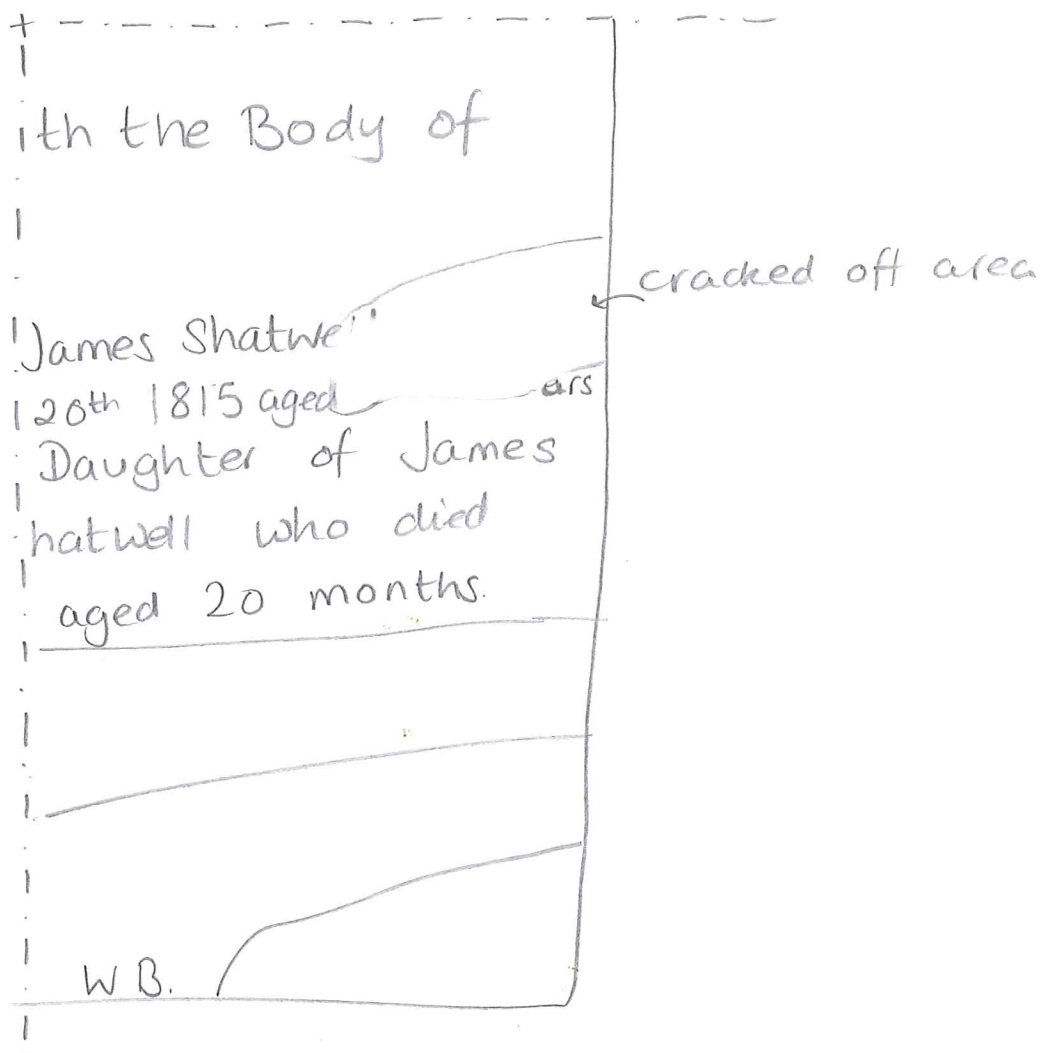 ith the Body of
cracked off area
James Shatwe
20th 1815 aged ars
Daughter of James
hatwell who died
aged 20 months.
W B.